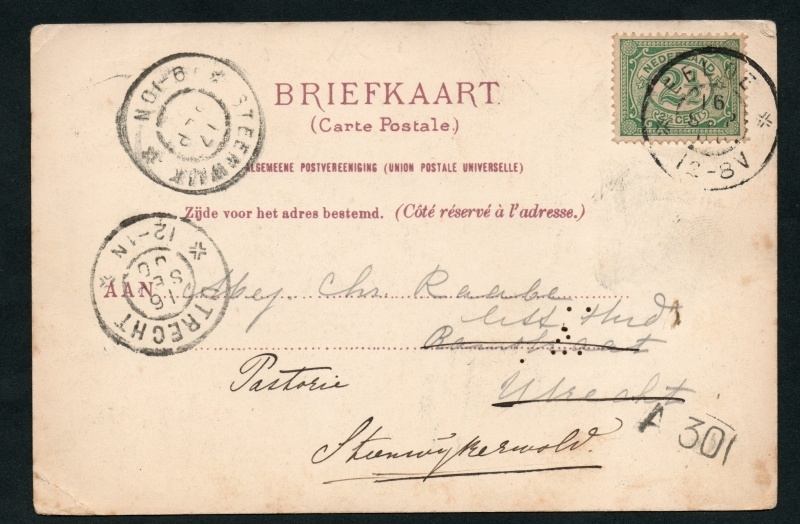 BRIEFKAART
(Carte Postale.)
ALGEMEENE POSTVEREENIGING (UNION POSTALE UNIVERSELLE)
Zijde voor het adres bestemd. (Côté réservé à l'adresse.)
NEDERLAND
2½
(2½ CENT)
16
12-8V
STEENWIJK
17
UTRECHT
12-1N
16
SEP
AAN Mej. Chr. Raabe
Utrecht
Pastorie
Steenwijkerwold.
A 301